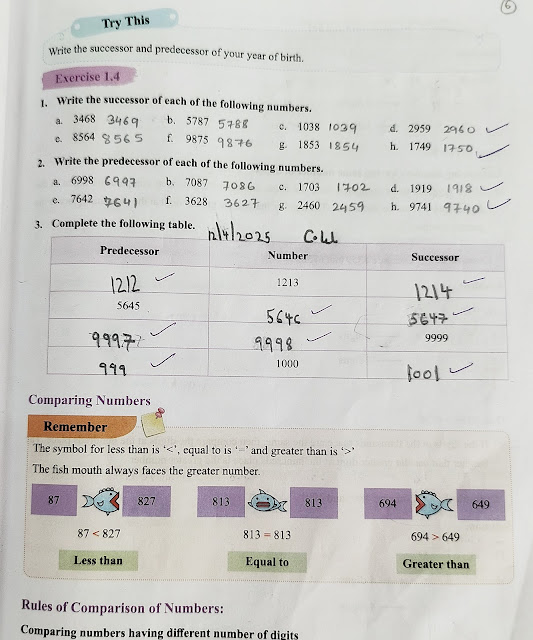 6
Try This
Write the successor and predecessor of your year of birth.
Exercise 1.4
1. Write the successor of each of the following numbers.
a. 3468 3469 b. 5787 5788 c. 1038 1039 d. 2959 2960
e. 8564 8565 f. 9875 9876 g. 1853 1854 h. 1749 1750
2. Write the predecessor of each of the following numbers.
a. 6998 6997 b. 7087 7086 c. 1703 1702 d. 1919 1918
e. 7642 7641 f. 3628 3627 g. 2460 2459 h. 9741 9740
3. Complete the following table. 12/4/2025 C.W
Predecessor Number Successor
1212 1213 1214
5645 5646 5647
9997 9998 9999
999 1000 1001
Comparing Numbers
Remember
The symbol for less than is ‘<’, equal to is ‘=’ and greater than is ‘>’
The fish mouth always faces the greater number.
87 827 813 813 694 649
87 < 827 813 = 813 694 > 649
Less than Equal to Greater than
Rules of Comparison of Numbers:
Comparing numbers having different number of digits